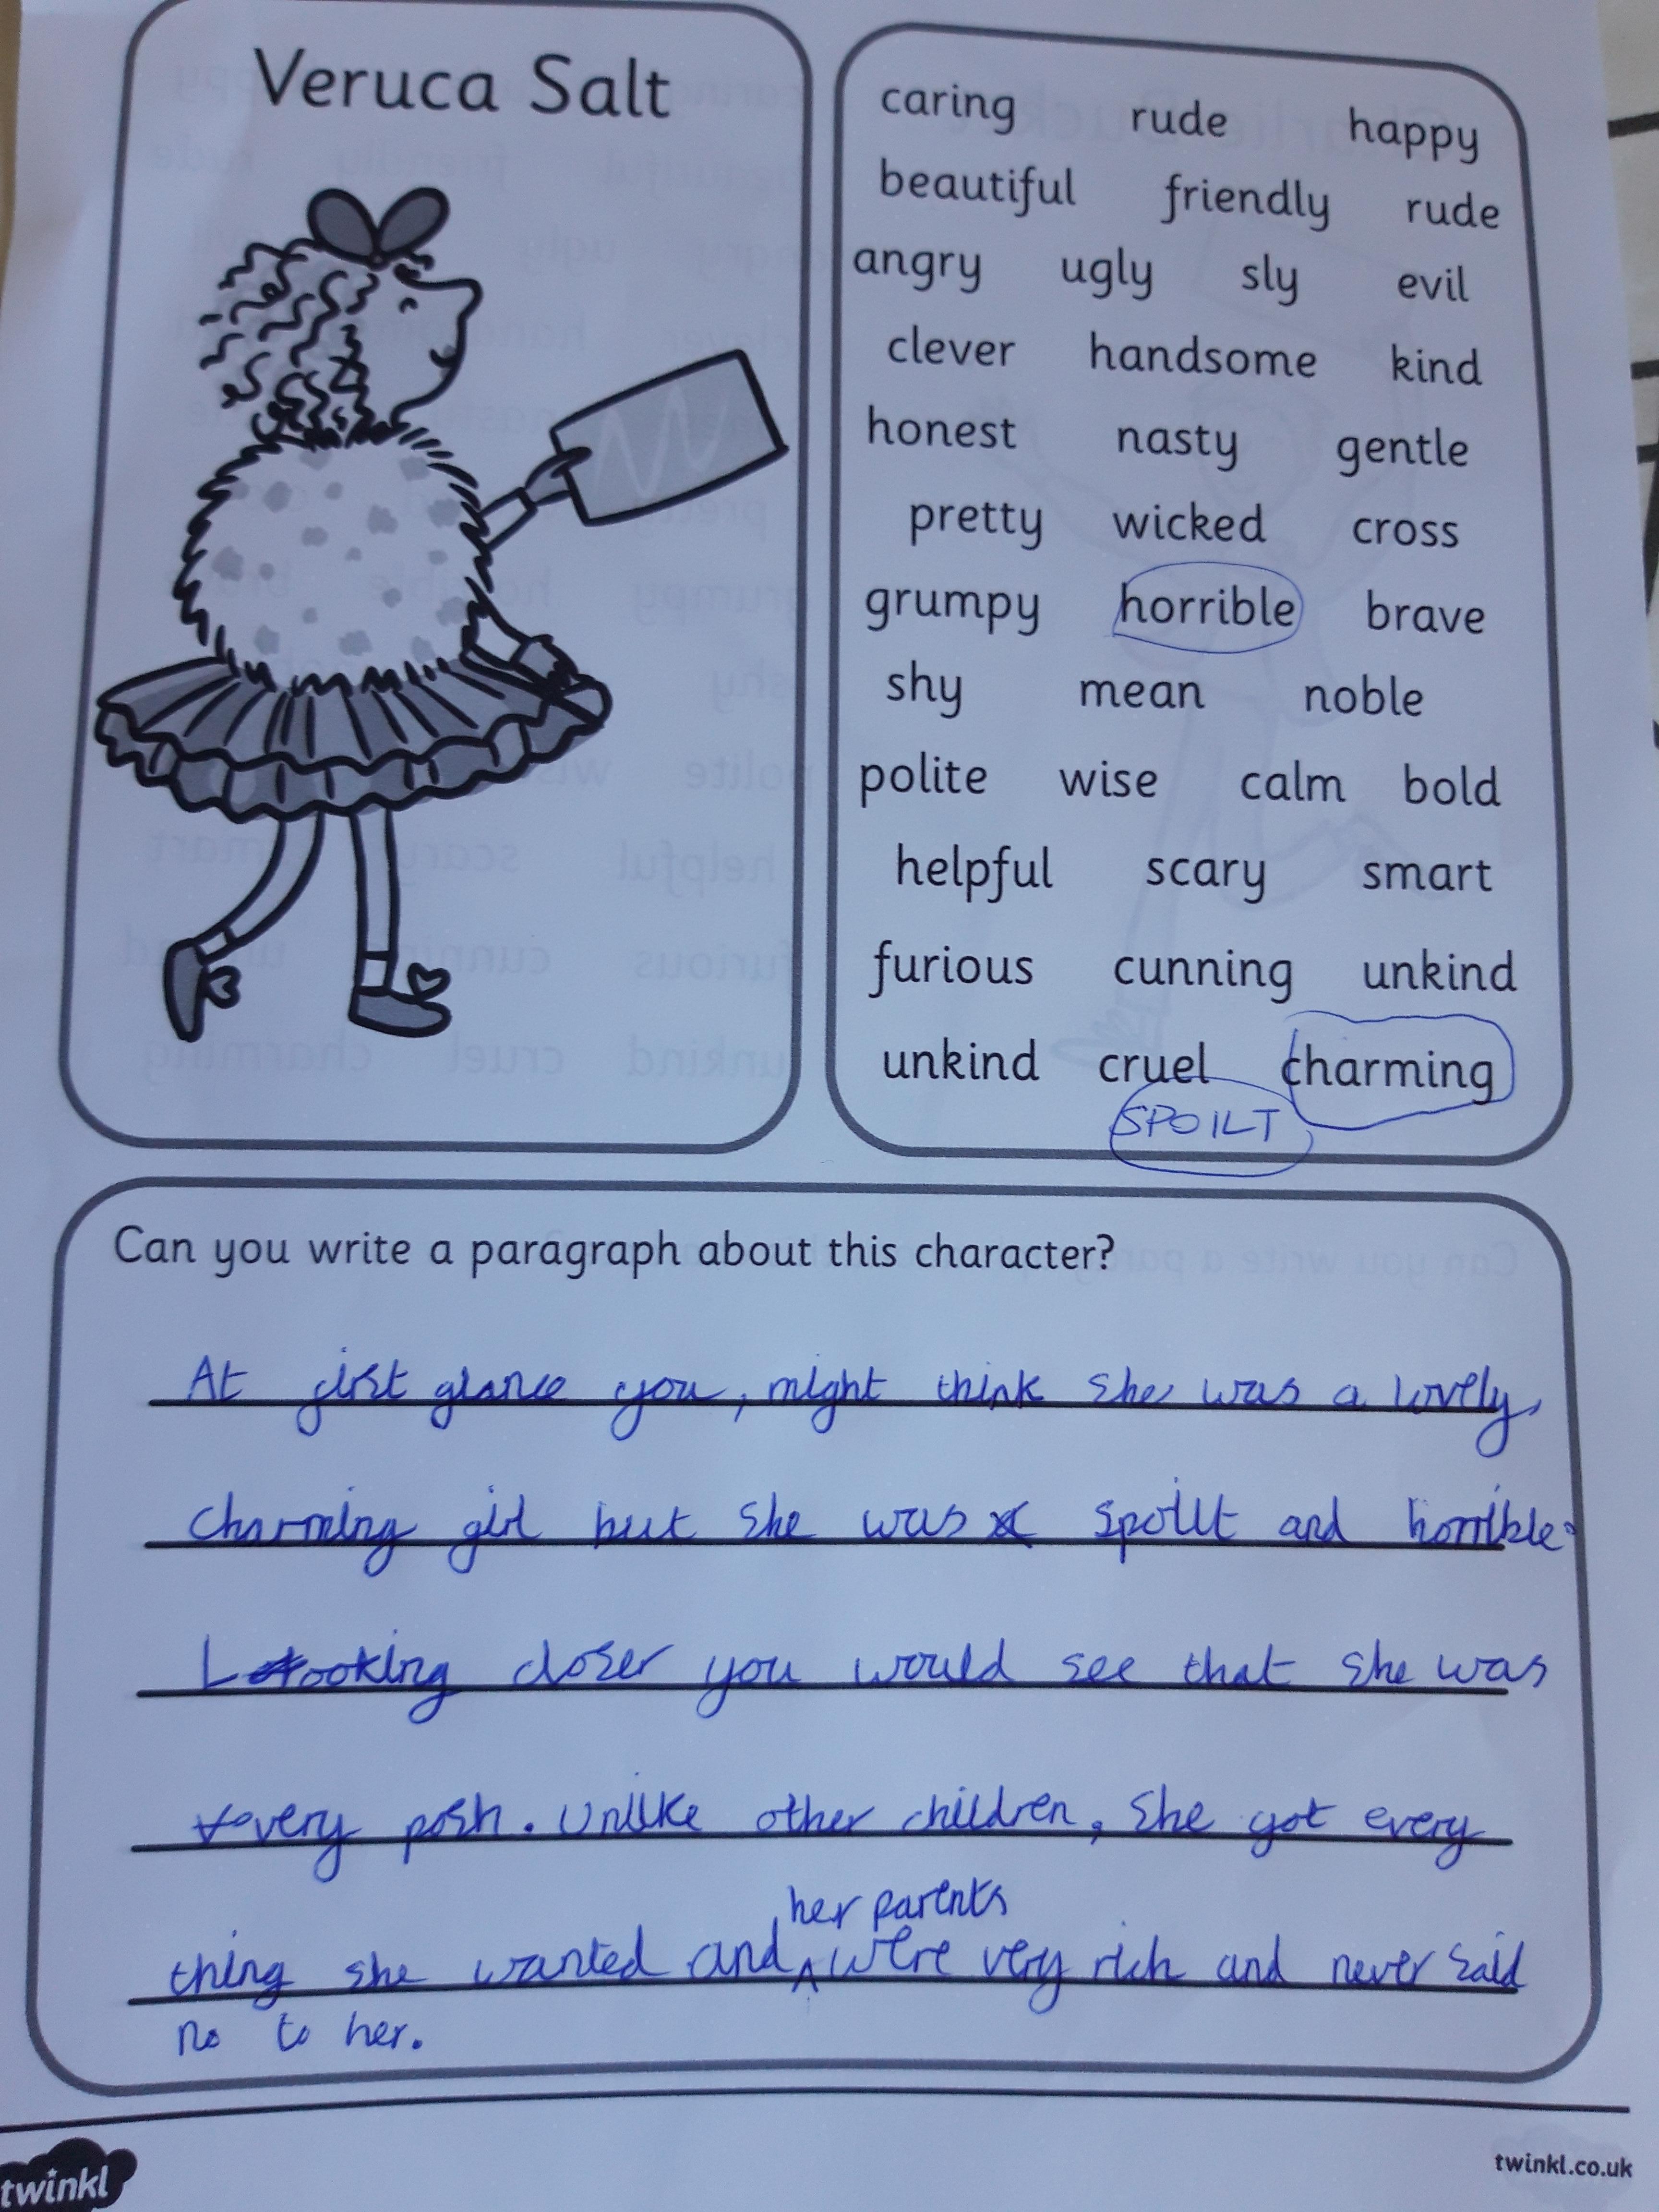 Veruca Salt
caring rude happy
beautiful friendly rude
angry ugly sly evil
clever handsome kind
honest nasty gentle
pretty wicked cross
grumpy horrible brave
shy mean noble
polite wise calm bold
helpful scary smart
furious cunning unkind
unkind cruel charming
SPOILT
Can you write a paragraph about this character?
At first glance you, might think she was a lovely,
charming girl but she was spoilt and horrible.
Looking closer you would see that she was
very posh. Unlike other children, she got every
her parents
thing she wanted and were very rich and never said
no to her.
twinkl
twinkl.co.uk